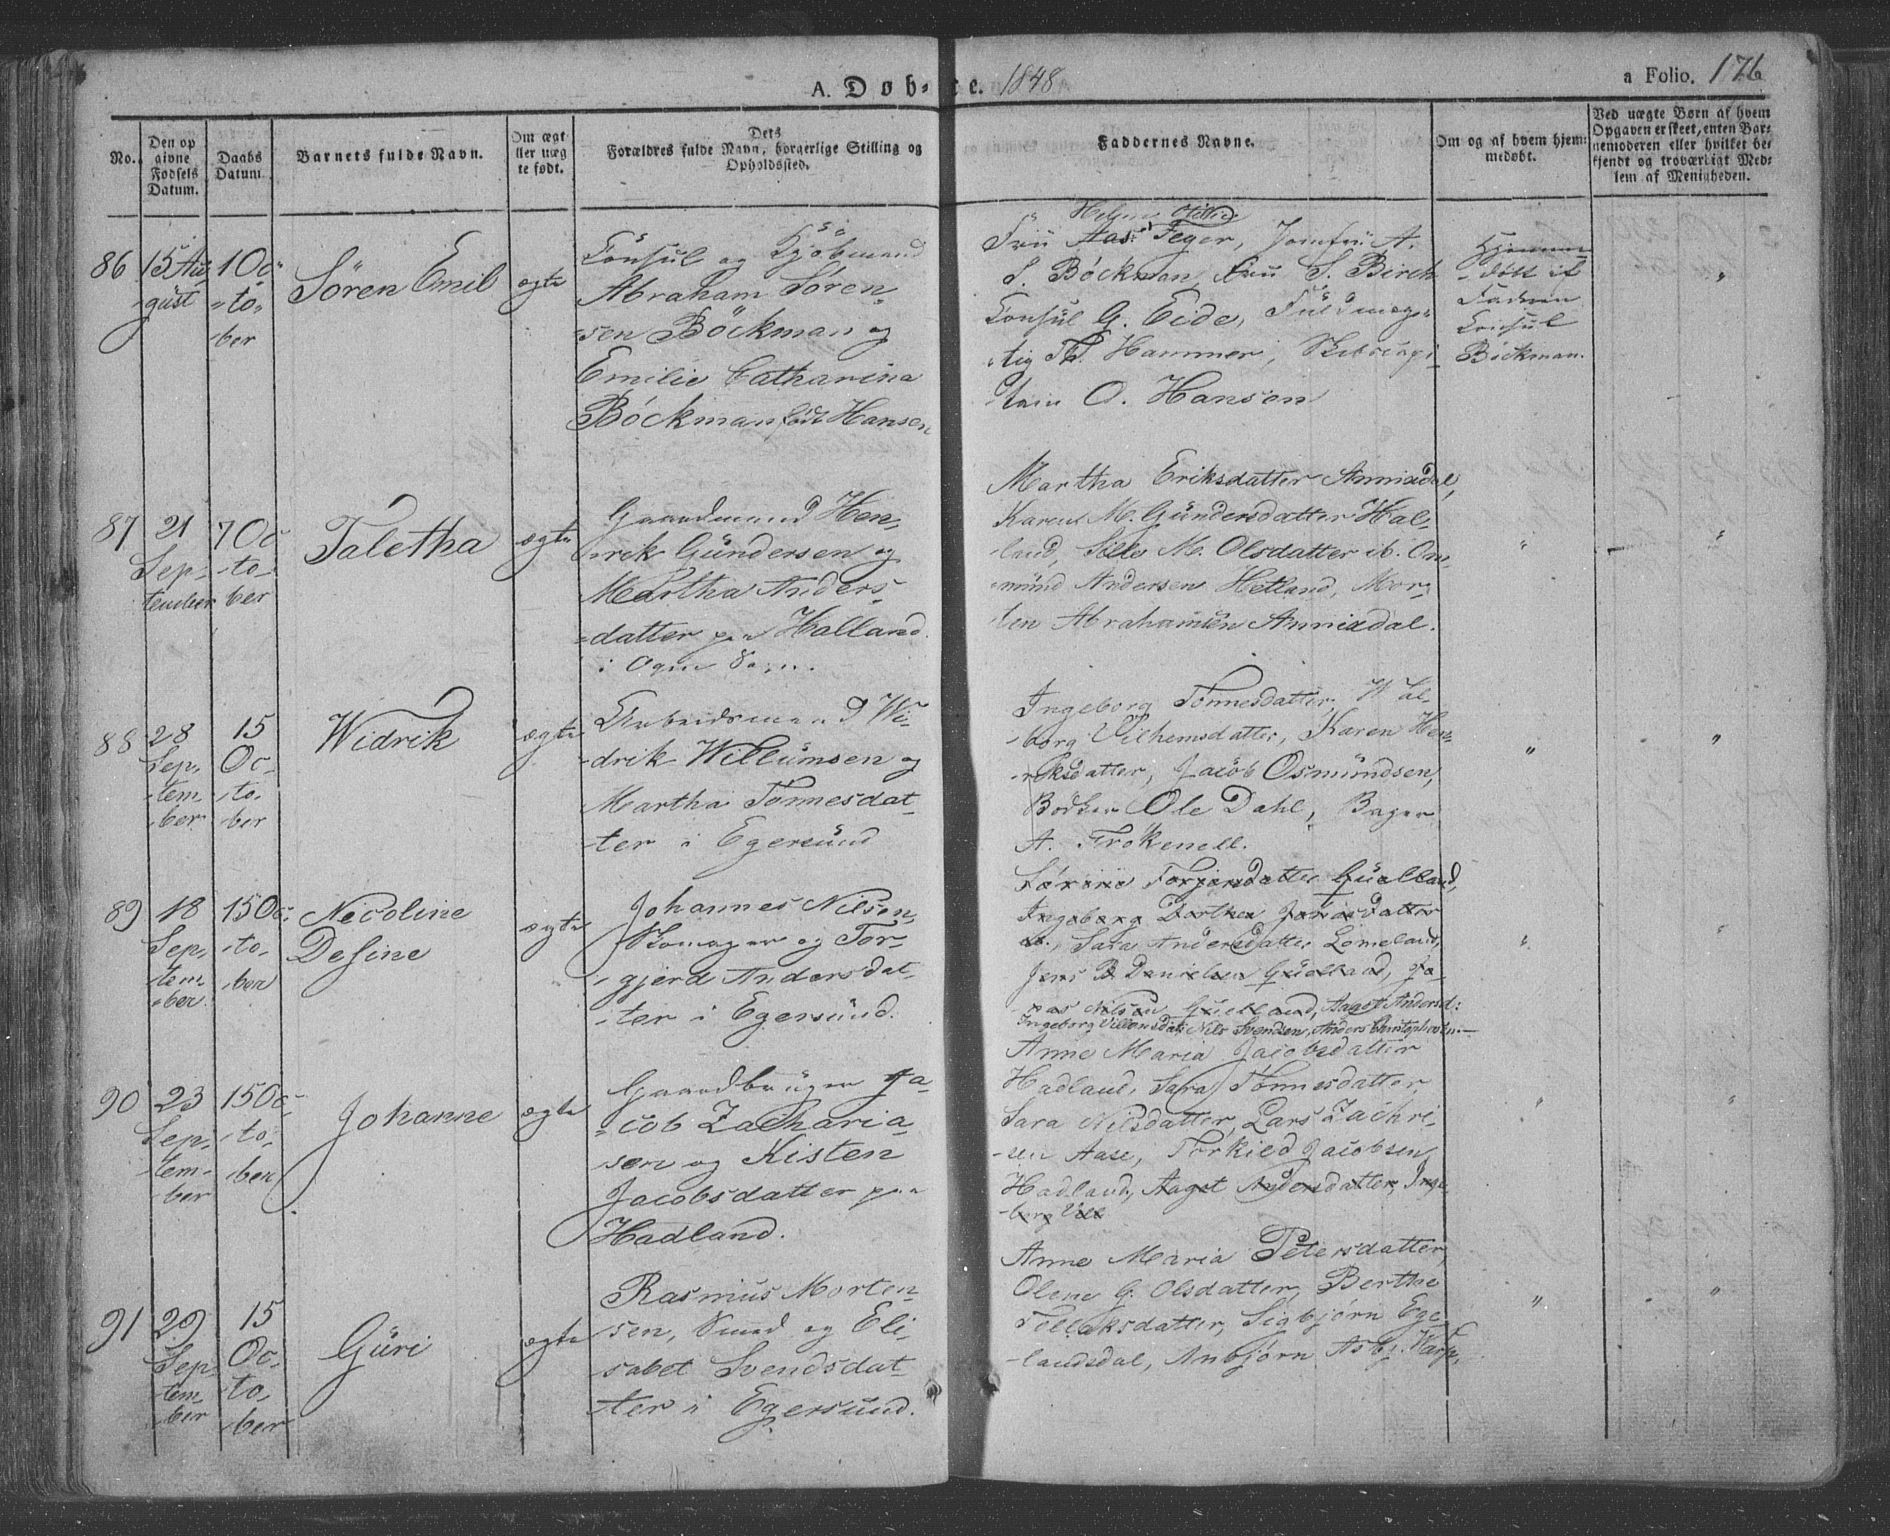 A. Døbte. 1848
a Folio. 176
No.
Den op
givne
Fødsels
Datum.
Daabs
Datum
Barnets fulde Navn.
Om ægt
ller uæg
te født.
Dets
Forældres fulde Navn, borgerlige Stilling og
Opholdssted.
Faddernes Navne.
Om og af hvem hjem-
medøbt.
Ved uægte Børn af hvem
Opgaven er skeet, enten Bar-
nemoderen eller hvilket be-
kjendt og troværligt Med-
lem af Menigheden.
86
15 Au
gust
10 Oc
to
ber
Sören Emil
ægte
Consul og Kjöbmand
Abraham Sören
sen Böckman og
Emilie Catharina
Böckman född Hansen
Helene
Frü Aas Feyer, Jomfrü A.
S. Böckman, Frü S. Birch
Consul G. Eide, Füldmæg-
tig Th. Hammer, Skibscapi-
tain O. Hansen
Hjemme
döbt af
Faderen
Consul
Böckman.
87
21
Sep-
tember
7 Oc
to-
ber
Taletha
ægte
Gaardmand Hen-
rik Gündersen og
Martha Anders-
datter paa Halland
i Ogne Sogn.
Martha Eriksdatter Anniadal,
Karen M. Gündersdatter Hal-
land, Sille M. Olsdatter ib. Om-
münd Andersen Hetland, Mor-
ten Abrahamsen Anniadal.
88
28
Sep-
tem
ber
15
Oc-
to-
ber
Widrik
ægte
Arbeidsmand Wi-
drik Willümsen og
Martha Tönnesdat-
ter i Egersünd
Ingeborg Tönnesdatter, Wal-
borg Vilhemsdatter, Karen Hen-
riksdatter, Jacob Osmündsen,
Bödker Ole Dahl, Bager
A. Frökenell.
89
18
Sep-
tem-
ber
15 Oc-
to-
ber
Nicoline
Desine
ægte
Johannes Nilsen
Skomager og Tor-
gjerd Andersdat-
ter i Egersünd.
Sörine Torjersdatter Güelland,
Ingeborg Dorthea Jonasdatter
ib., Sara Andersdatter Lomeland,
Jens B Danielsen Güelland, Jo-
nas Nilsen Güelland, Aagot Andersd:
Ingeborg Villumsdat: Nils Svendsen, Anders Christophersen.
90
23
Sep-
tem-
ber
15 Oc-
to-
ber
Johanne
ægte
Gaardbrüger Ja-
cob Zacharia-
sen og Kisten
Jacobsdatter paa
Hadland.
Anne Maria Jacobsdatter
Hadland, Sara Tönnesdatter
Sara Nilsdatter, Lars Zachri-
sen Aase, Torkied Jacobsen
Hadland, Aagot Andersdatter, Inge-
borg Vill
91
29
Sep-
tem-
ber
15
Oc-
to-
ber
Güri
ægte
Rasmus Morten-
sen, Smed og Eli-
sabet Svendsdat-
ter i Egersund.
Anne Maria Petersdatter,
Olene G. Olsdatter, Berthe
Tollaksdatter, Sigbjørn Ege-
landsdal, Anbjörn Asbj. Warp.